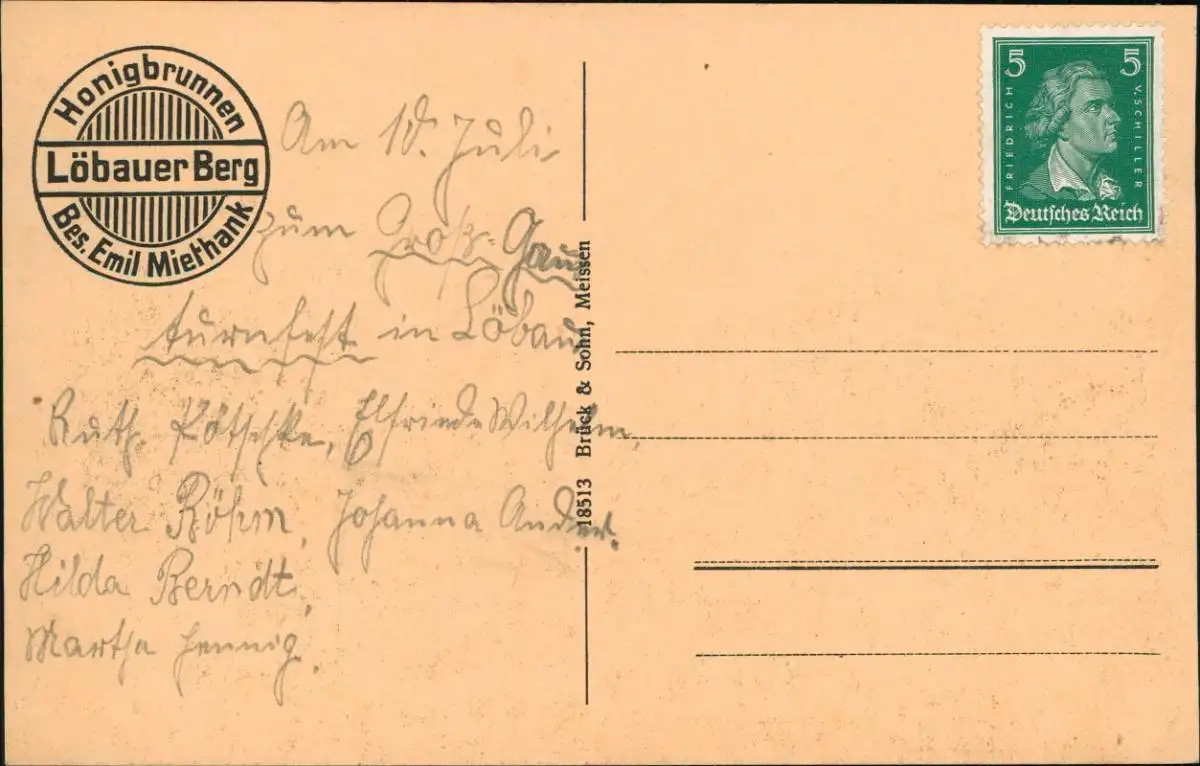 Honigbrunnen
Löbauer Berg
Bes. Emil Miethank
Am 10. Juli
zum Groß-Gau
turnfest in Löbau
Ruth Pötschke, Elfriede Wilhelm,
Walter Böhm, Johanna Ander.
Hilda Berndt,
Martha Hennig.
18513 Brück & Sohn, Meissen
5 5
FRIEDRICH V. SCHILLER
Deutsches Reich